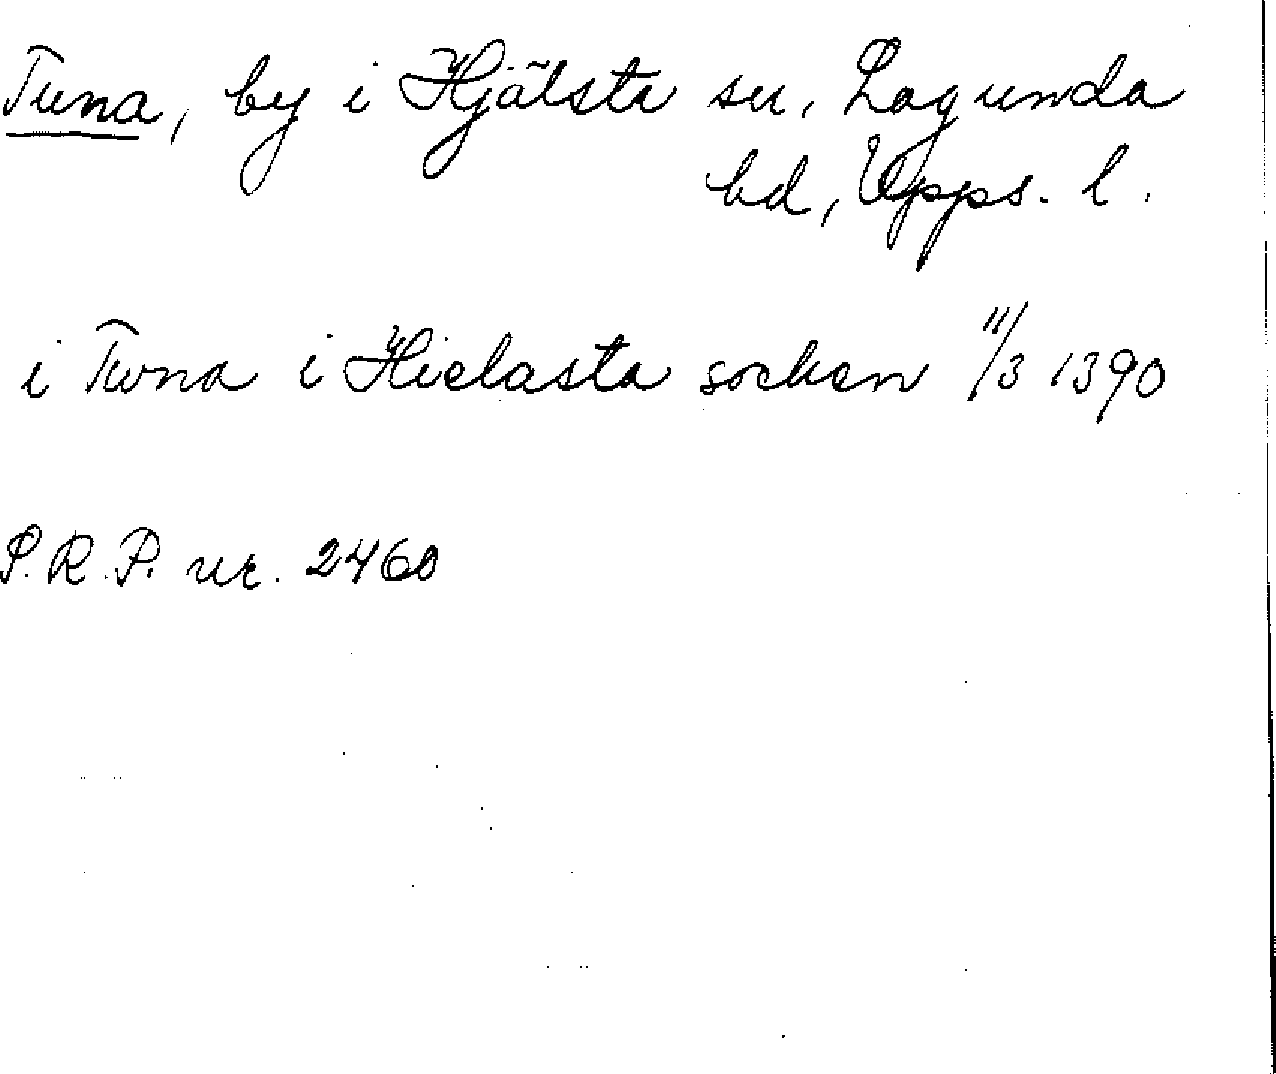 Tuna, by i Hjälsta sn, Lagunda
hd, Upps. l.
i Twna i Hielasta socken 11/3 1390
S.R.P. nr. 2460